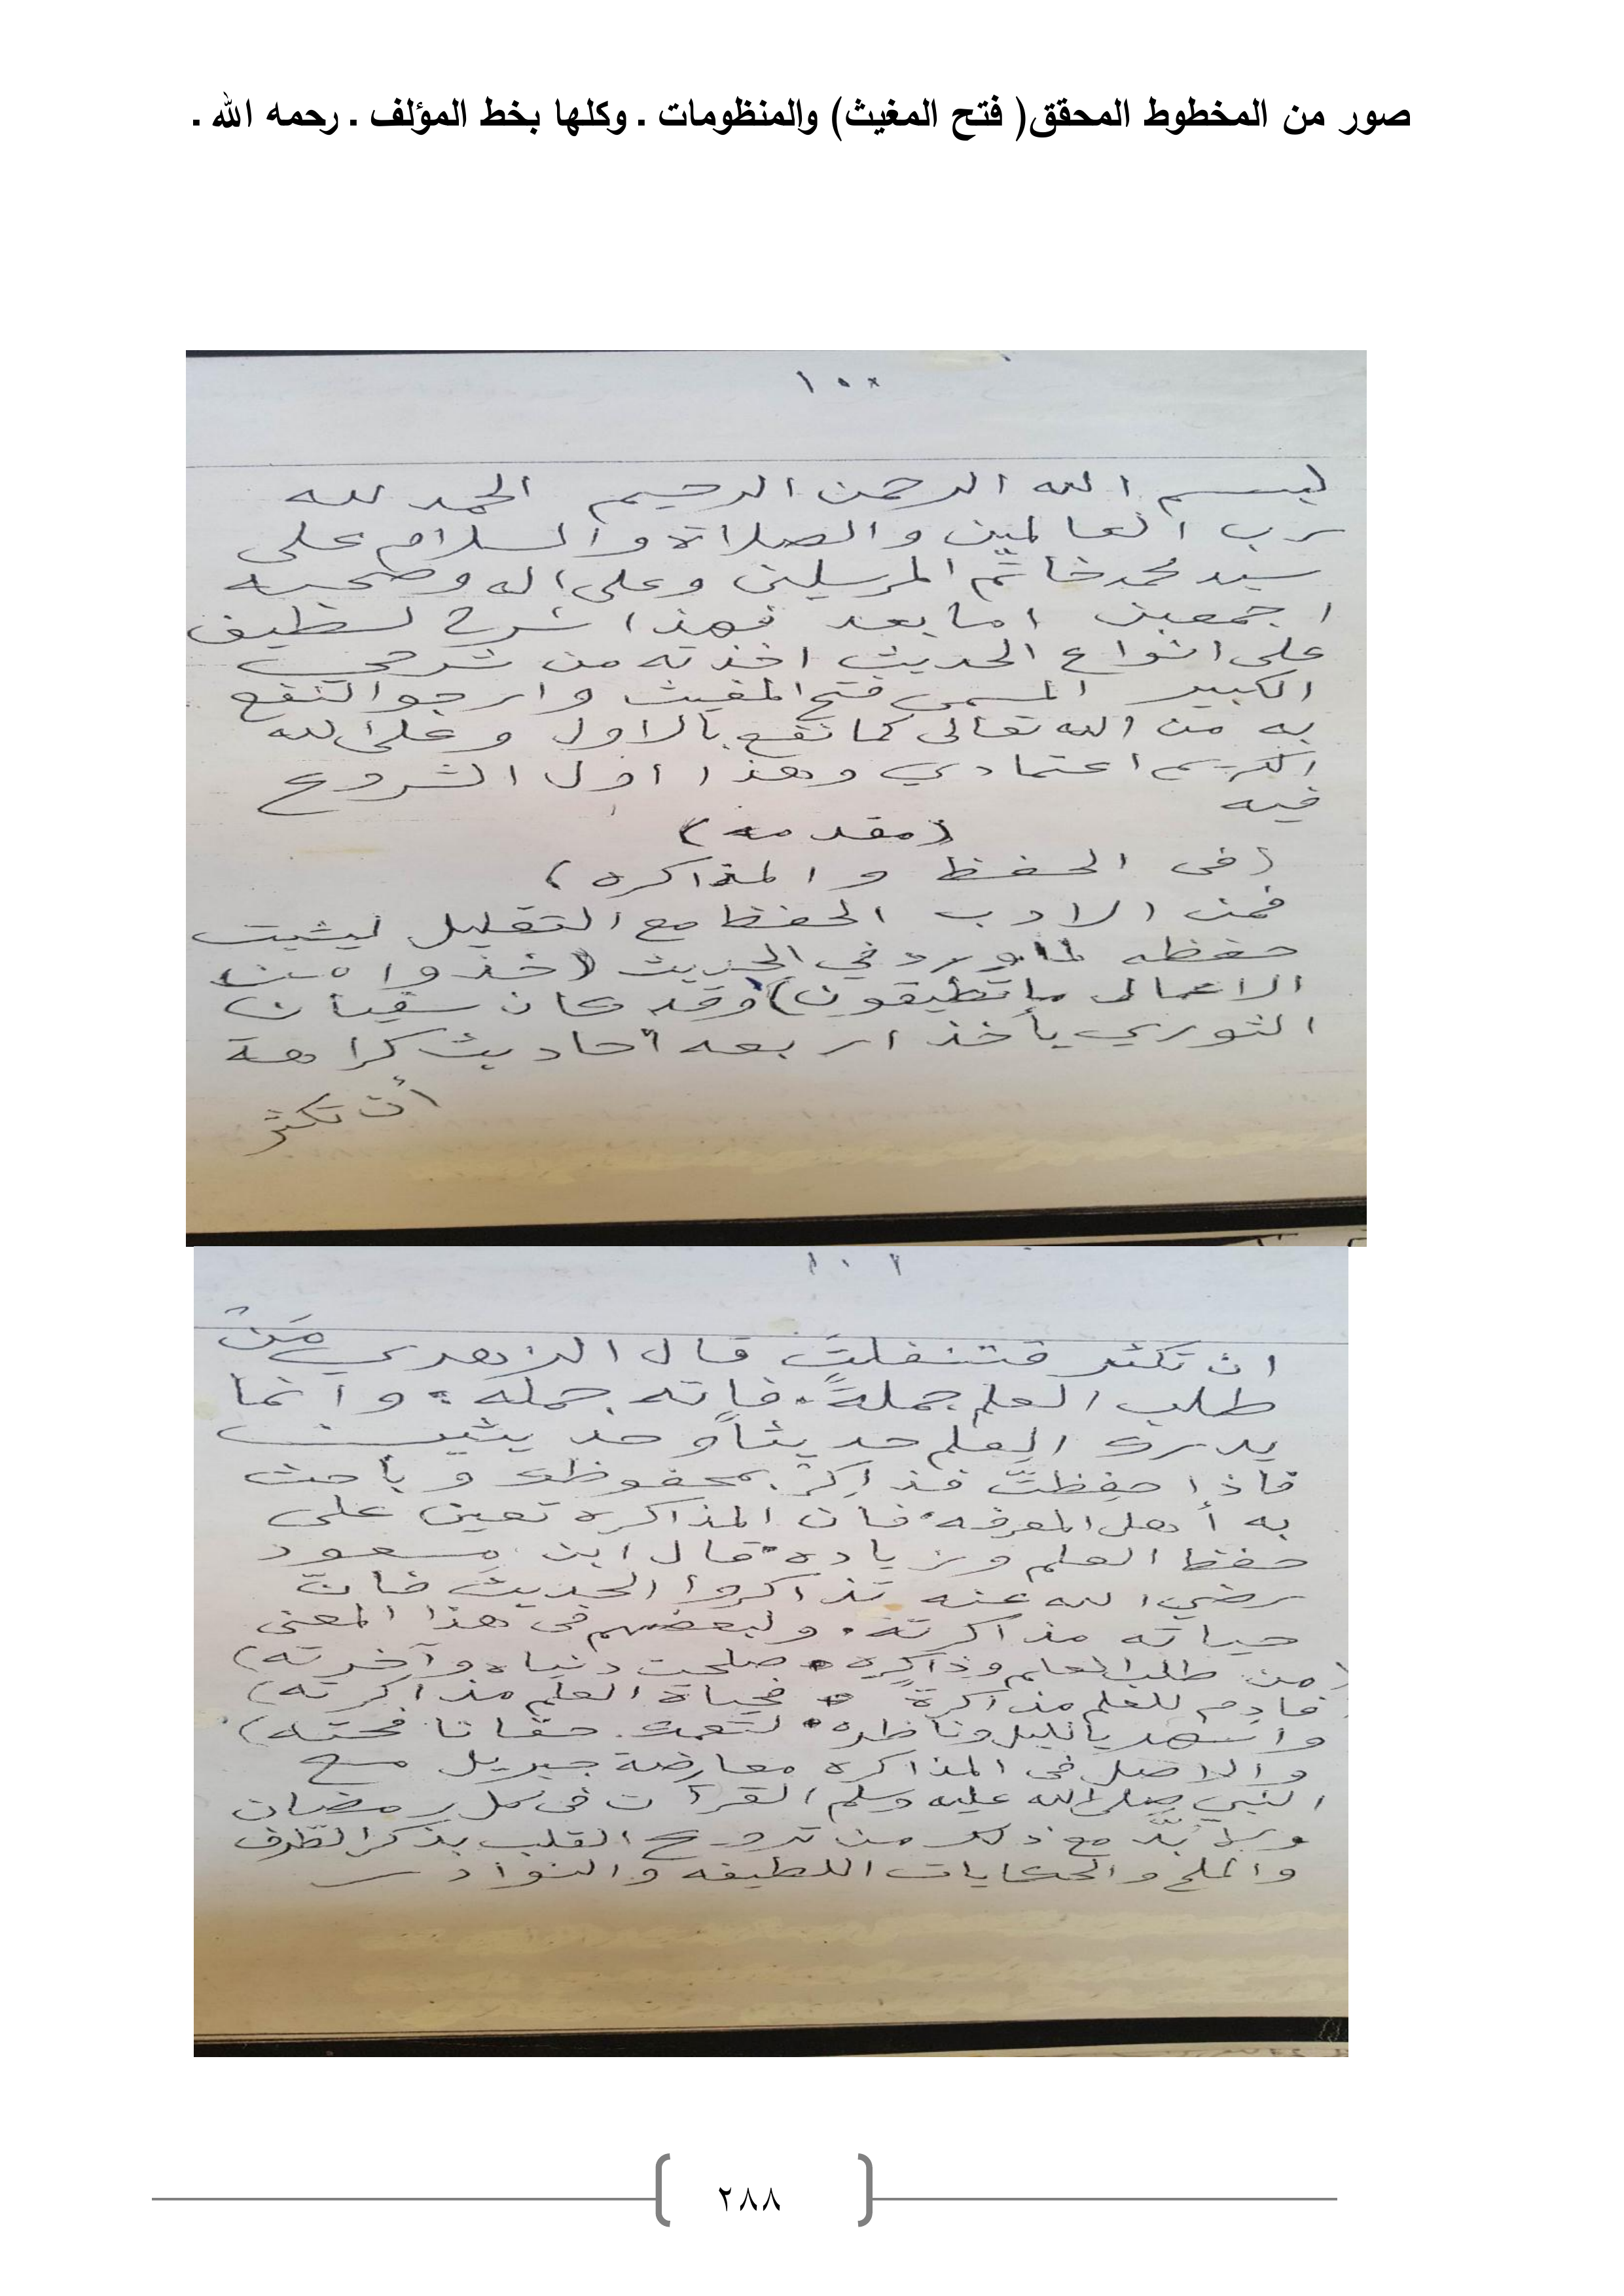 صور من المخطوط المحقق( فتح المغيث) والمنظومات . وكلها بخط المؤلف . رحمه الله .
١٠٠
بسم الله الرحمن الرحيم الحمد لله
رب العالمين والصلاة والسلام على
سيد محمد خاتم المرسلين وعلى اله وصحبه
اجمعين اما بعد فهذا شرح لطيف
على انواع الحديث اخذته من شرحي
الكبير المسمى فتح المغيث وارجو النفع
به من الله تعالى كما نفع بالاول وعلى الله
الكريم اعتمادي وهذا اول الشروع
فيه
(مقدمه)
(فى الحفظ والمذاكره)
فمن الادب الحفظ مع التقليل ليثبت
حفظه لما ورد في الحديث (خذوا من
الاعمال ما تطيقون) وقد كان سفيان
الثوري يأخذ اربعه أحاديث كراهة
أن تكثر
١٠١
ان تكثر فتنفلت قال الزهري مَنْ
طلب العلم جملةً فاته جمله وانما
يدرك العلم حديثاً وحديثين
فاذا حفِظتَ فذاكِرْ بمحفوظك وباحث
به أهل المعرفه فان المذاكره تعين على
حفظ العلم وزياده قال ابن مسعود
رضي الله عنه تذاكروا الحديث فانّ
حياته مذاكرته. ولبعضهم فى هذا المعنى
(من طلب العلم وذاكره صلحت دنياه وآخرته)
فادم للعلم مذاكرة فحياة العلم مذاكرته)
واسهر بالليل وناظره
والاصل فى المذاكره معارضة جبريل مع
النبي صلى الله عليه وسلم القرآن فى كل رمضان
ولا بُدّ مع ذلك من ترويح القلب بذكر الطرف
والملح والحكايات اللطيفه والنوادر
٢٨٨